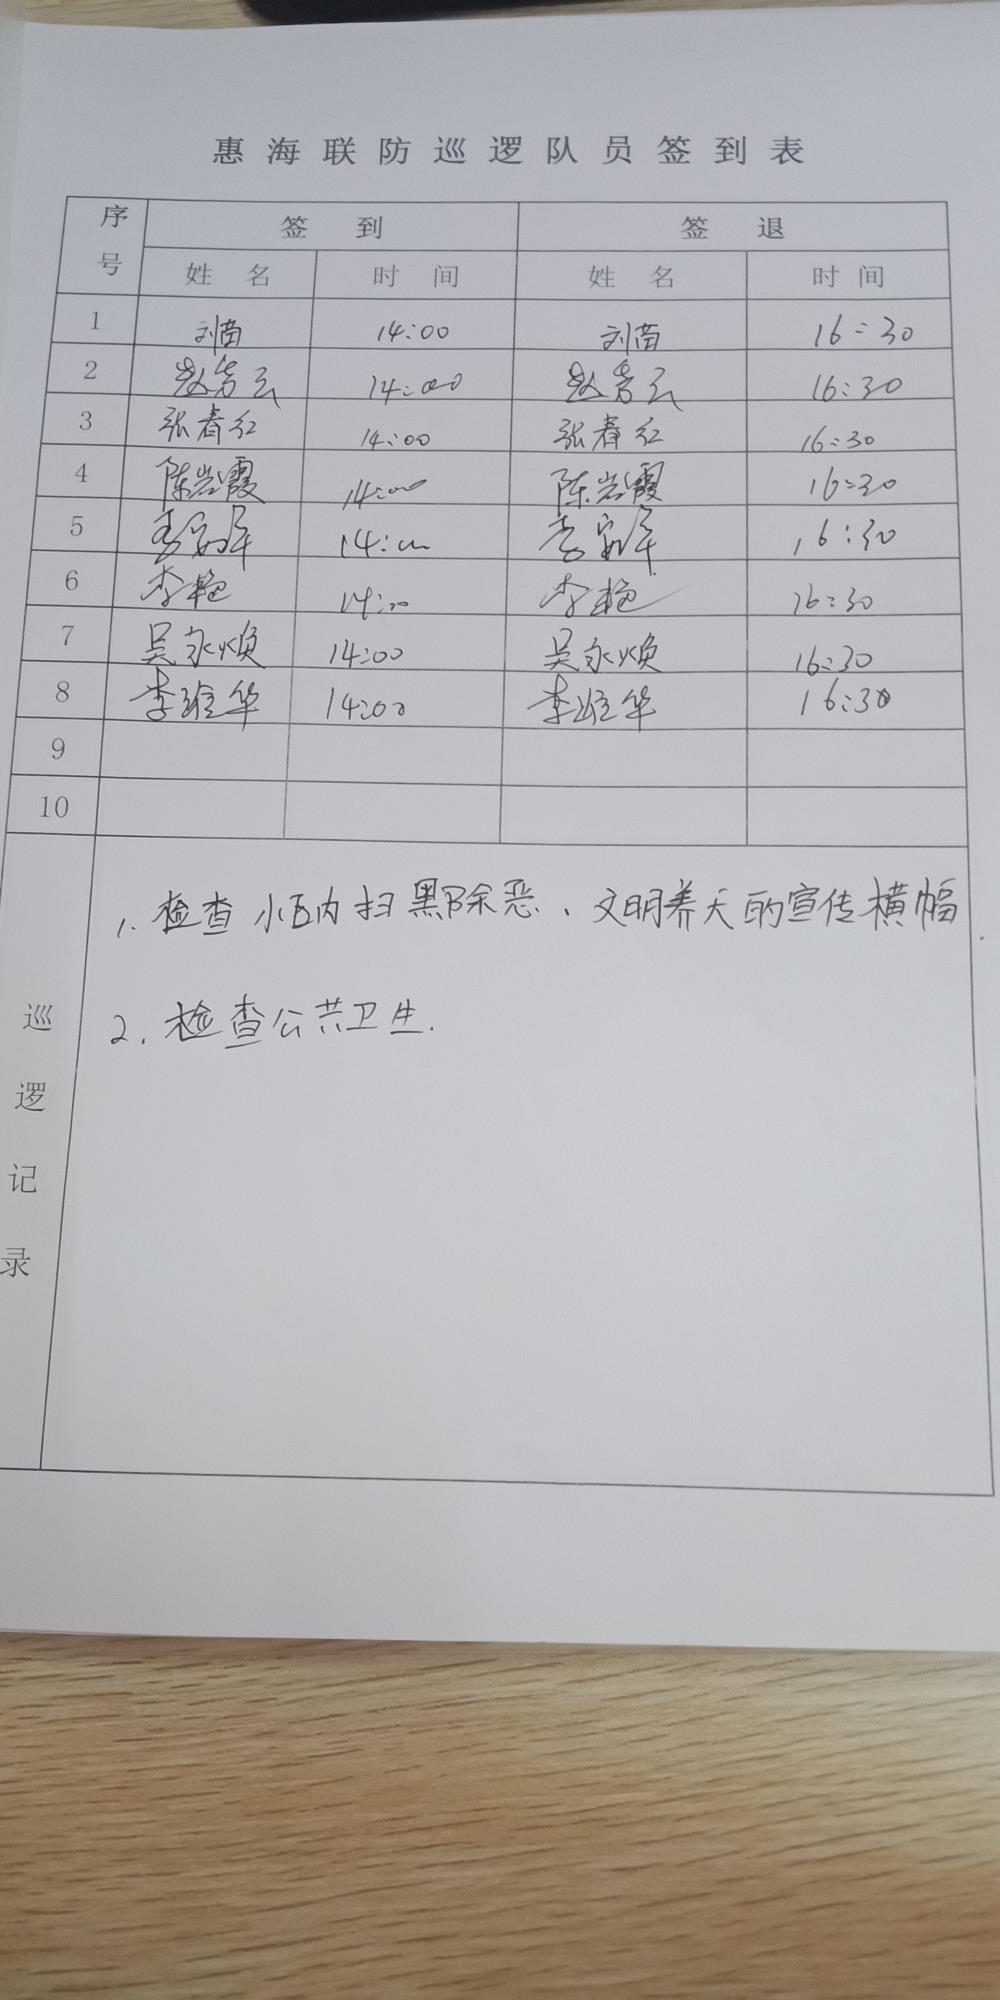 惠海联防巡逻队员签到表
序号 签到 签退
姓名 时间 姓名 时间
1 刘苗 14:00 刘苗 16:30
2 赵芳云 14:00 赵芳云 16:30
3 张春红 14:00 张春红 16:30
4 陈岩霞 14:00 陈岩霞 16:30
5 14:00 16:30
6 李艳 14:00 李艳 16:30
7 吴永焕 14:00 吴永焕 16:30
8 李 华 14:00 李 华 16:30
9
10
巡逻记录
1. 检查小区内扫黑除恶、文明养犬的宣传横幅
2. 检查公共卫生.